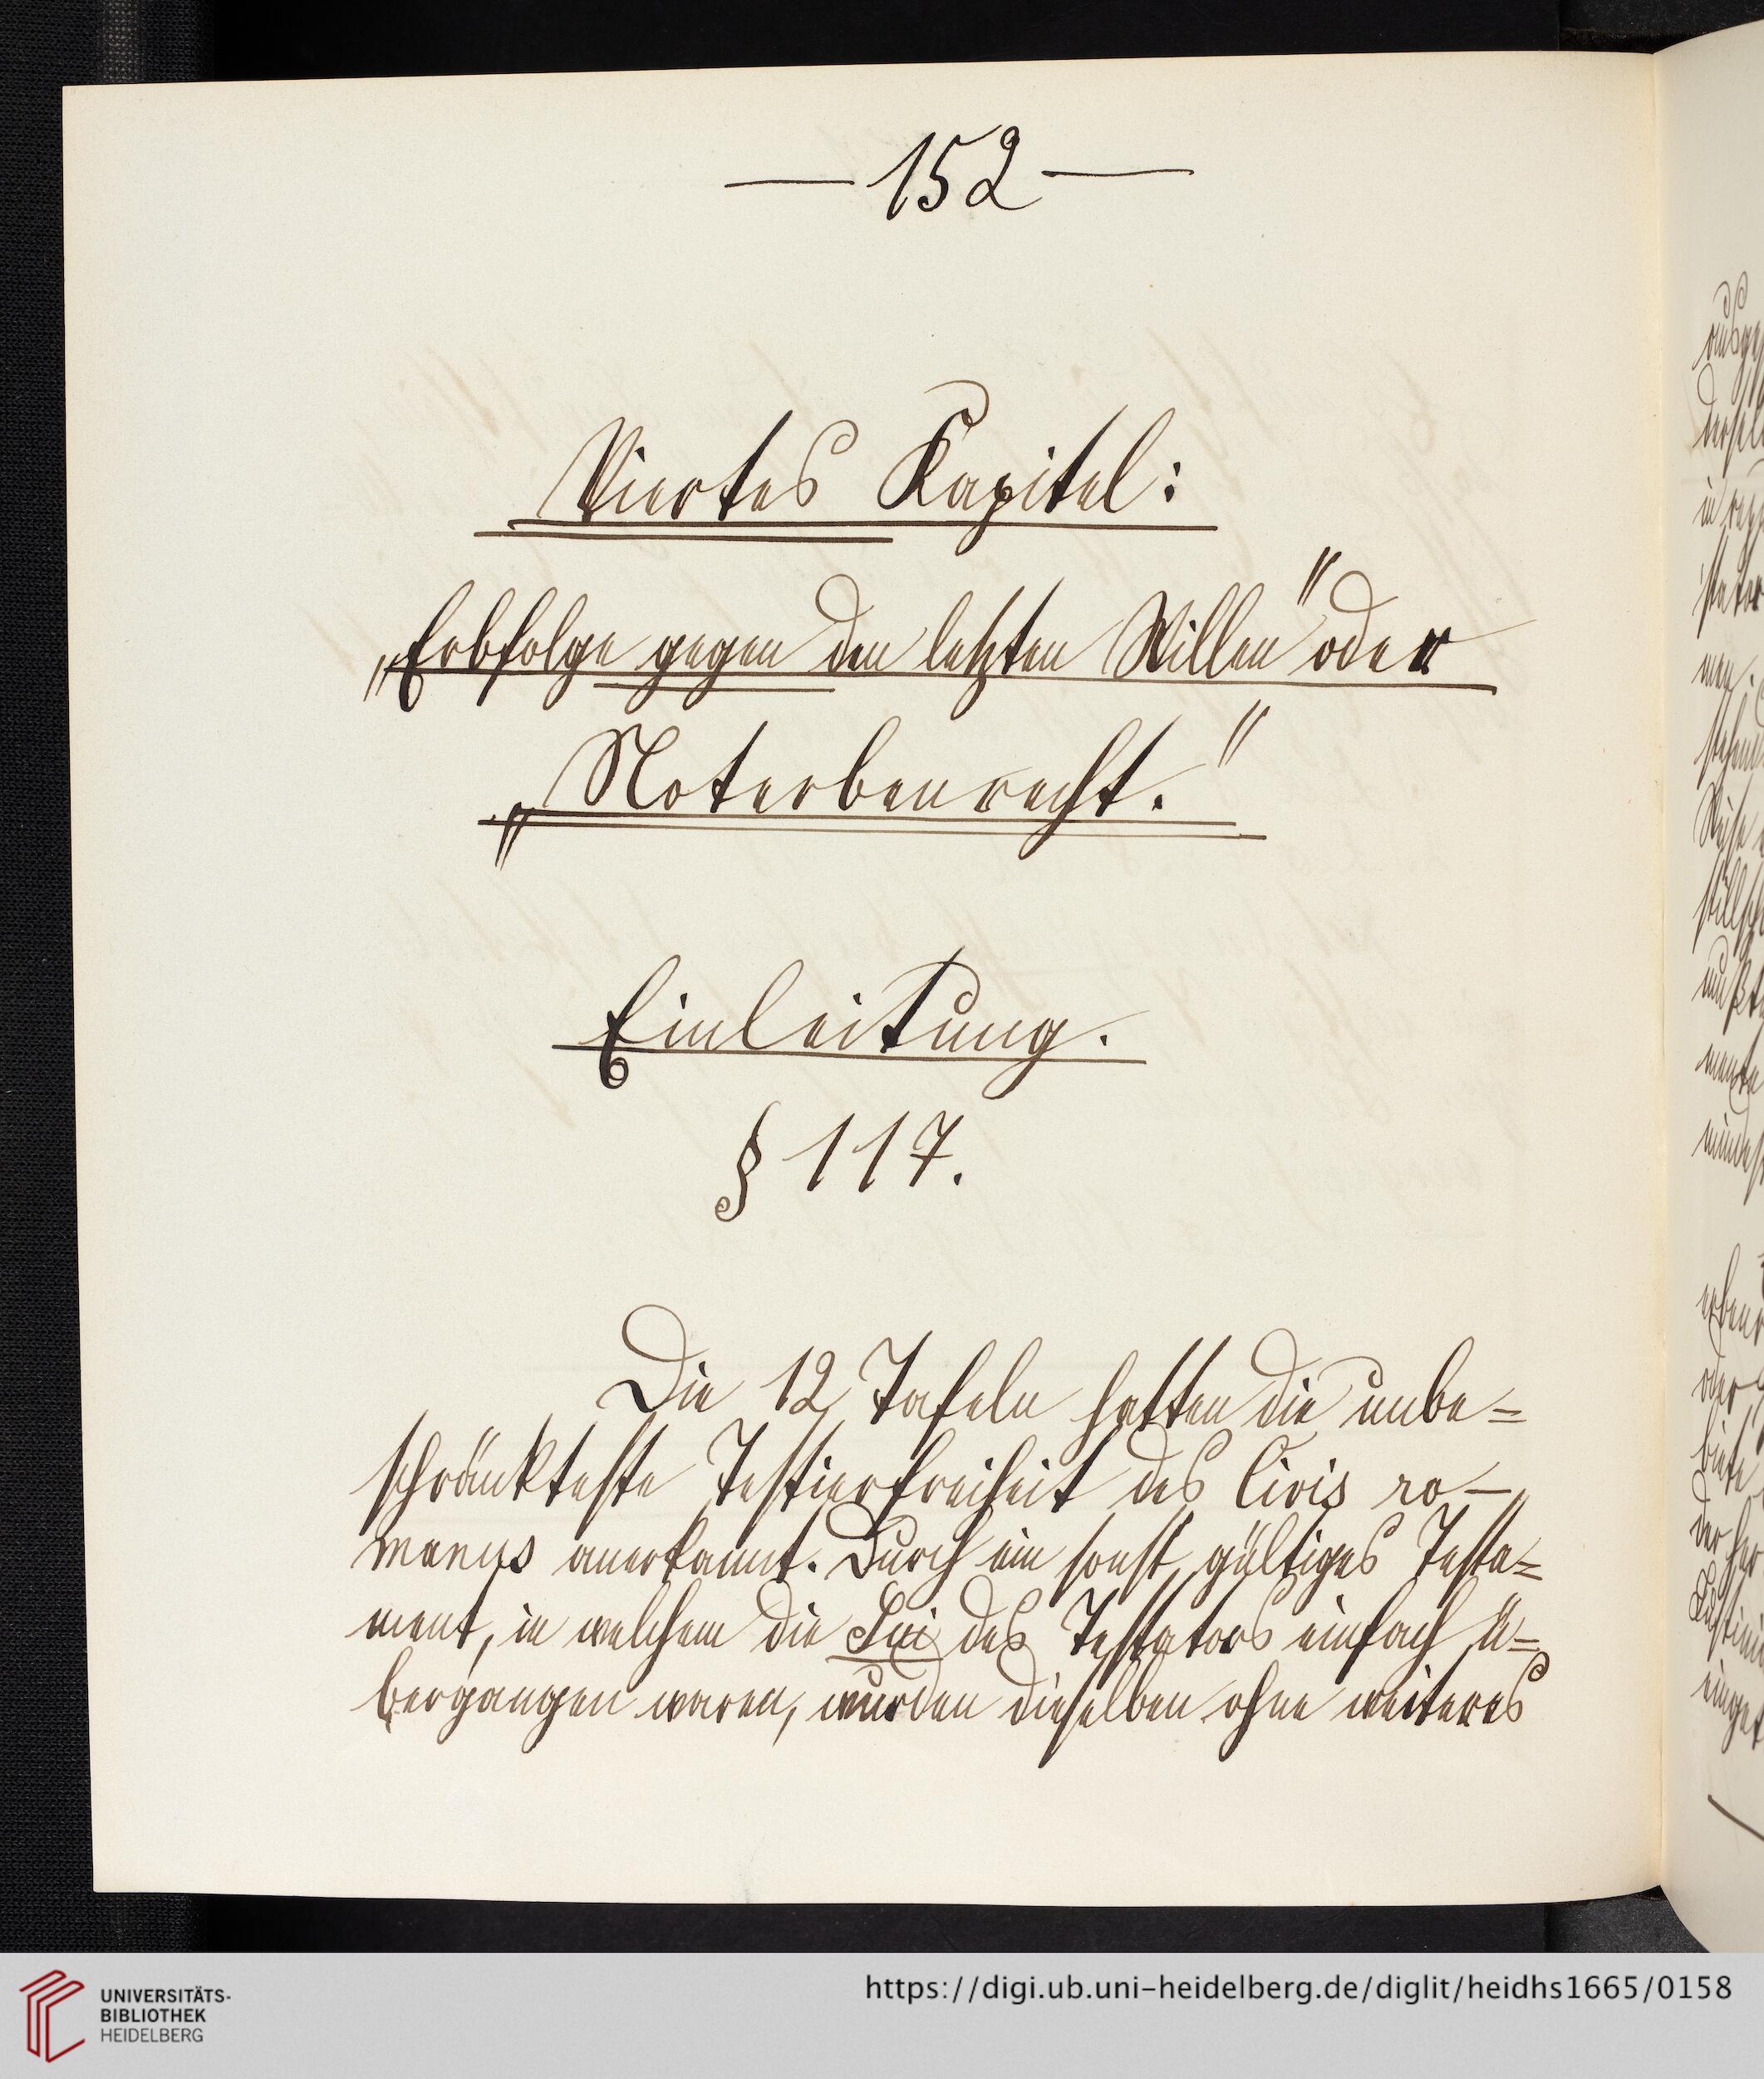 — 152 —
Viertes Kapitel:
„Erbfolge gegen den letzten Willen" oder
„Noterbenrecht."
Einleitung.
§ 117.
Die 12 Tafeln hatten die unbe=
schränkteste Testierfreiheit des Civis ro-
manus anerkannt. Durch ein sonst gültiges Testa=
ment, in welchem die Sui des Testators einfach ü=
bergangen waren, wurden dieselben ohne weiteres
UNIVERSITÄTS-
BIBLIOTHEK
HEIDELBERG
https://digi.ub.uni-heidelberg.de/diglit/heidhs1665/0158